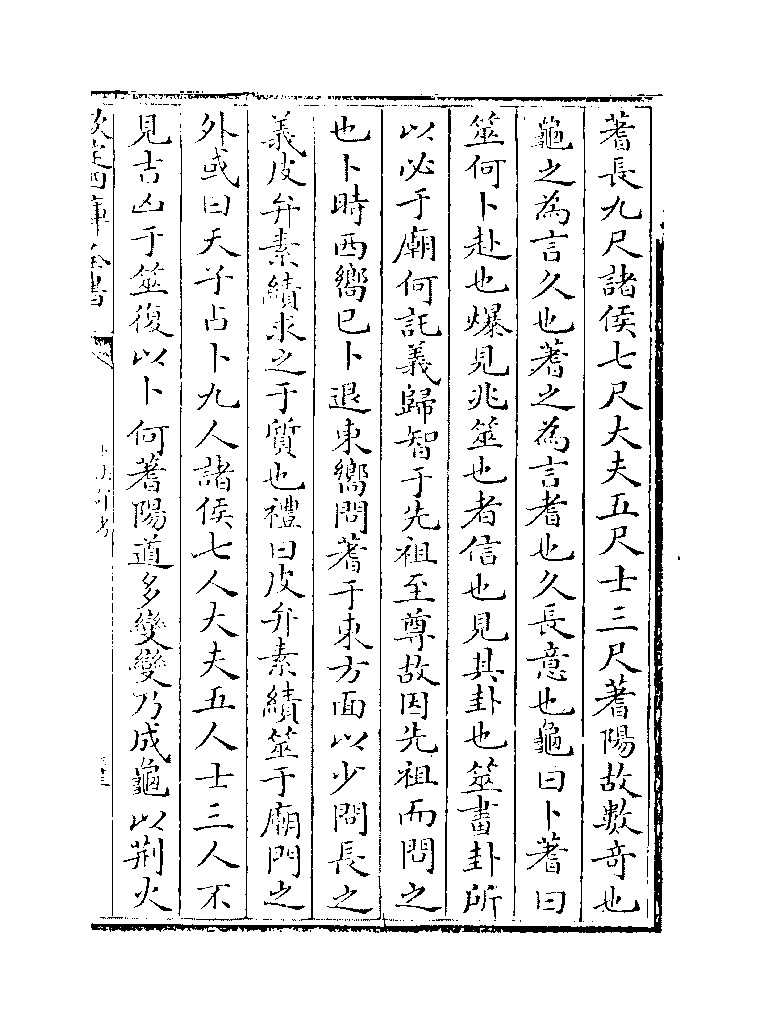 蓍長九尺諸侯七尺大夫五尺士三尺蓍陽故數奇也
龜之為言久也蓍之為言耆也久長意也龜曰卜蓍曰
筮何卜赴也爆見兆筮也者信也見其卦也筮畫卦所
以必于廟何託義歸智于先祖至尊故因先祖而問之
也卜時西嚮已卜退東嚮問蓍于東方面以少問長之
義皮弁素績求之于質也禮曰皮弁素績筮于廟門之
外或曰天子占卜九人諸侯七人大夫五人士三人不
見吉凶于筮復以卜何蓍陽道多變變乃成龜以荆火
欽定四庫全書